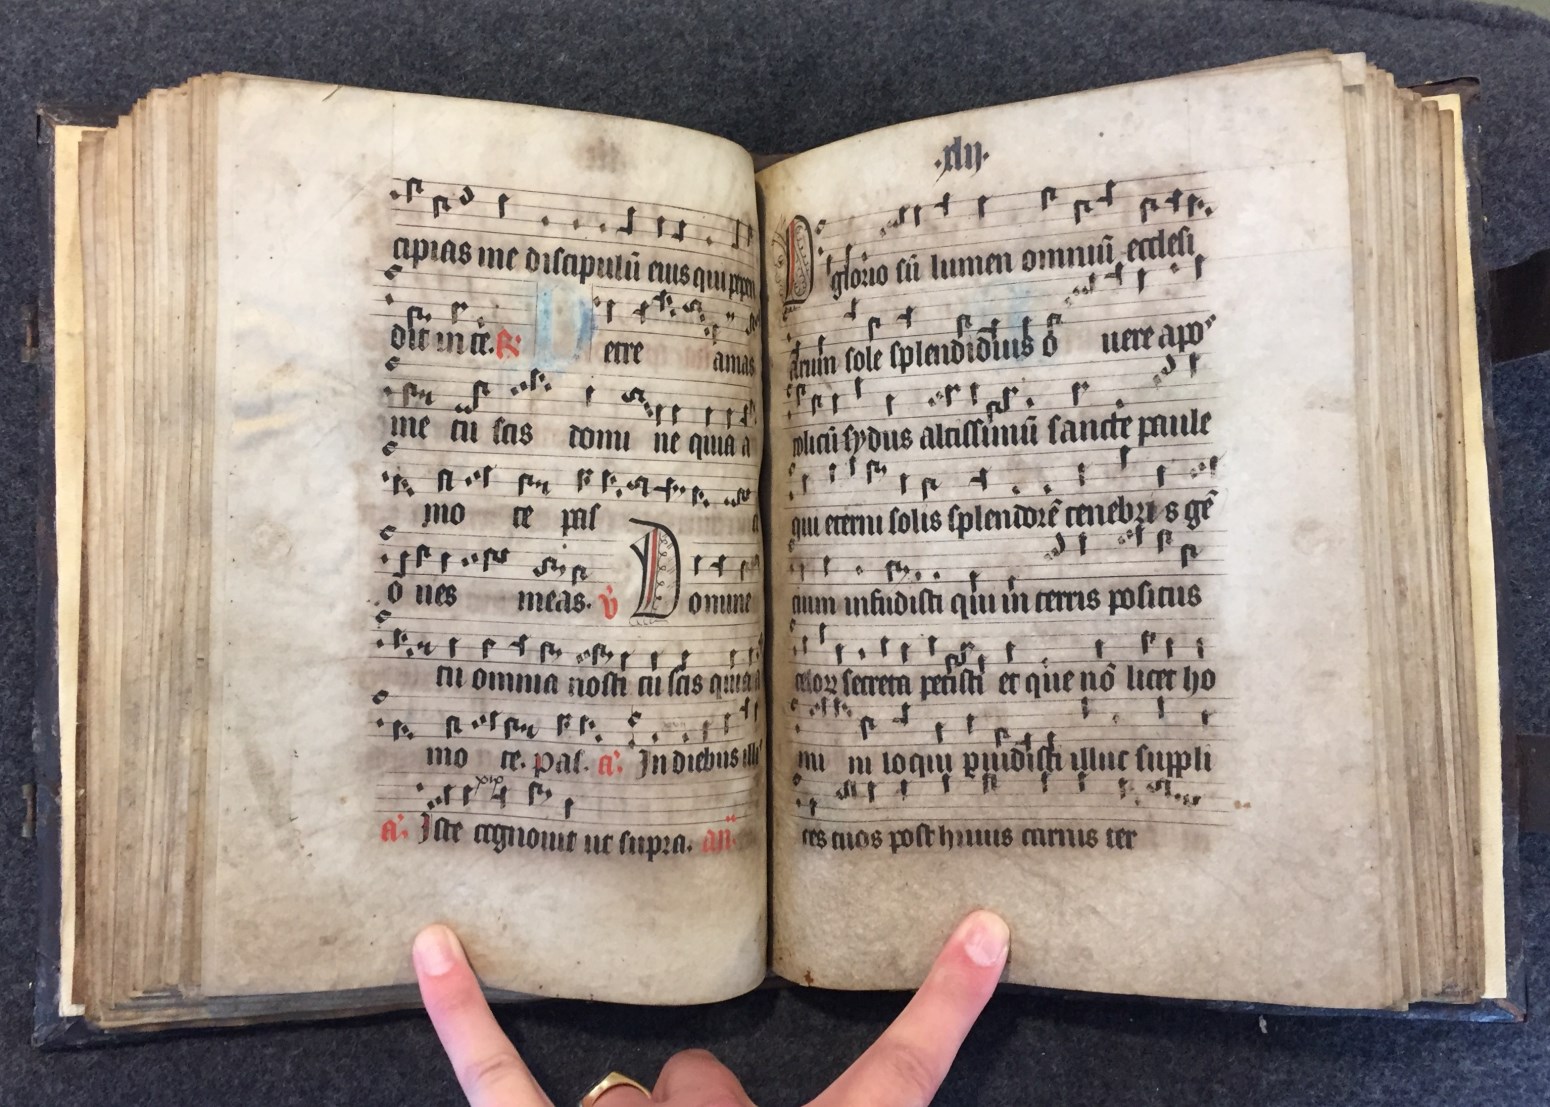 cipias me discipulū eius qui pepen
dit in cruce. R: Petre amas
me tu scis domi ne quia a
mo te pas
o ues meas. v̄ Domine
tu omnia nosti tu scis quia a
mo te. pas. a: In diebus ill'
a: Iste cognouit ut supra. añ
·xlij·
O glorio sū lumen omniū ecclesi
arum sole splendidius o uere apo
stolicū sydus altissimū sancte paule
qui eterni solis splendorē tenebris gē
cium infudisti qui in terris positus
celoꝝ secreta petisti et que nō licet ho
mi ni loqui ꝑuidisti illuc suppli
ces tuos post huius carnis ter